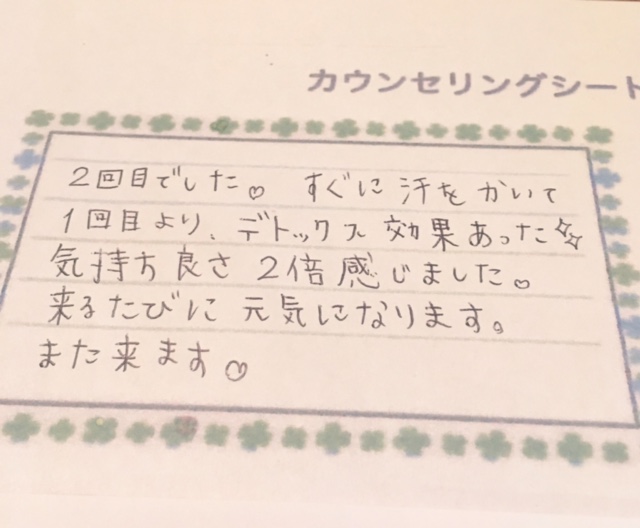 カウンセリングシート
2回目でした。♡ すぐに汗をかいて
1回目より、デトックス効果あった☆☆
気持ち良さ 2倍感じました。♡
来るたびに 元気になります。
また来ます♡